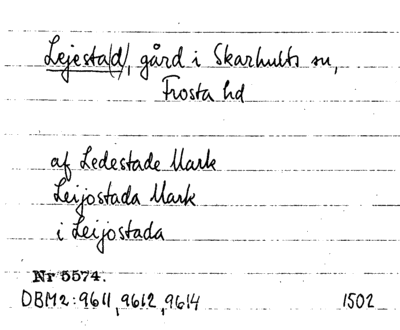 Lejesta(d), gård i Skarhults sn,
Frosta hd
af Ledestade Mark
Leijostada Mark
i Leijostada
Nr 5574.
DBM2:9611, 9612, 9614 1502